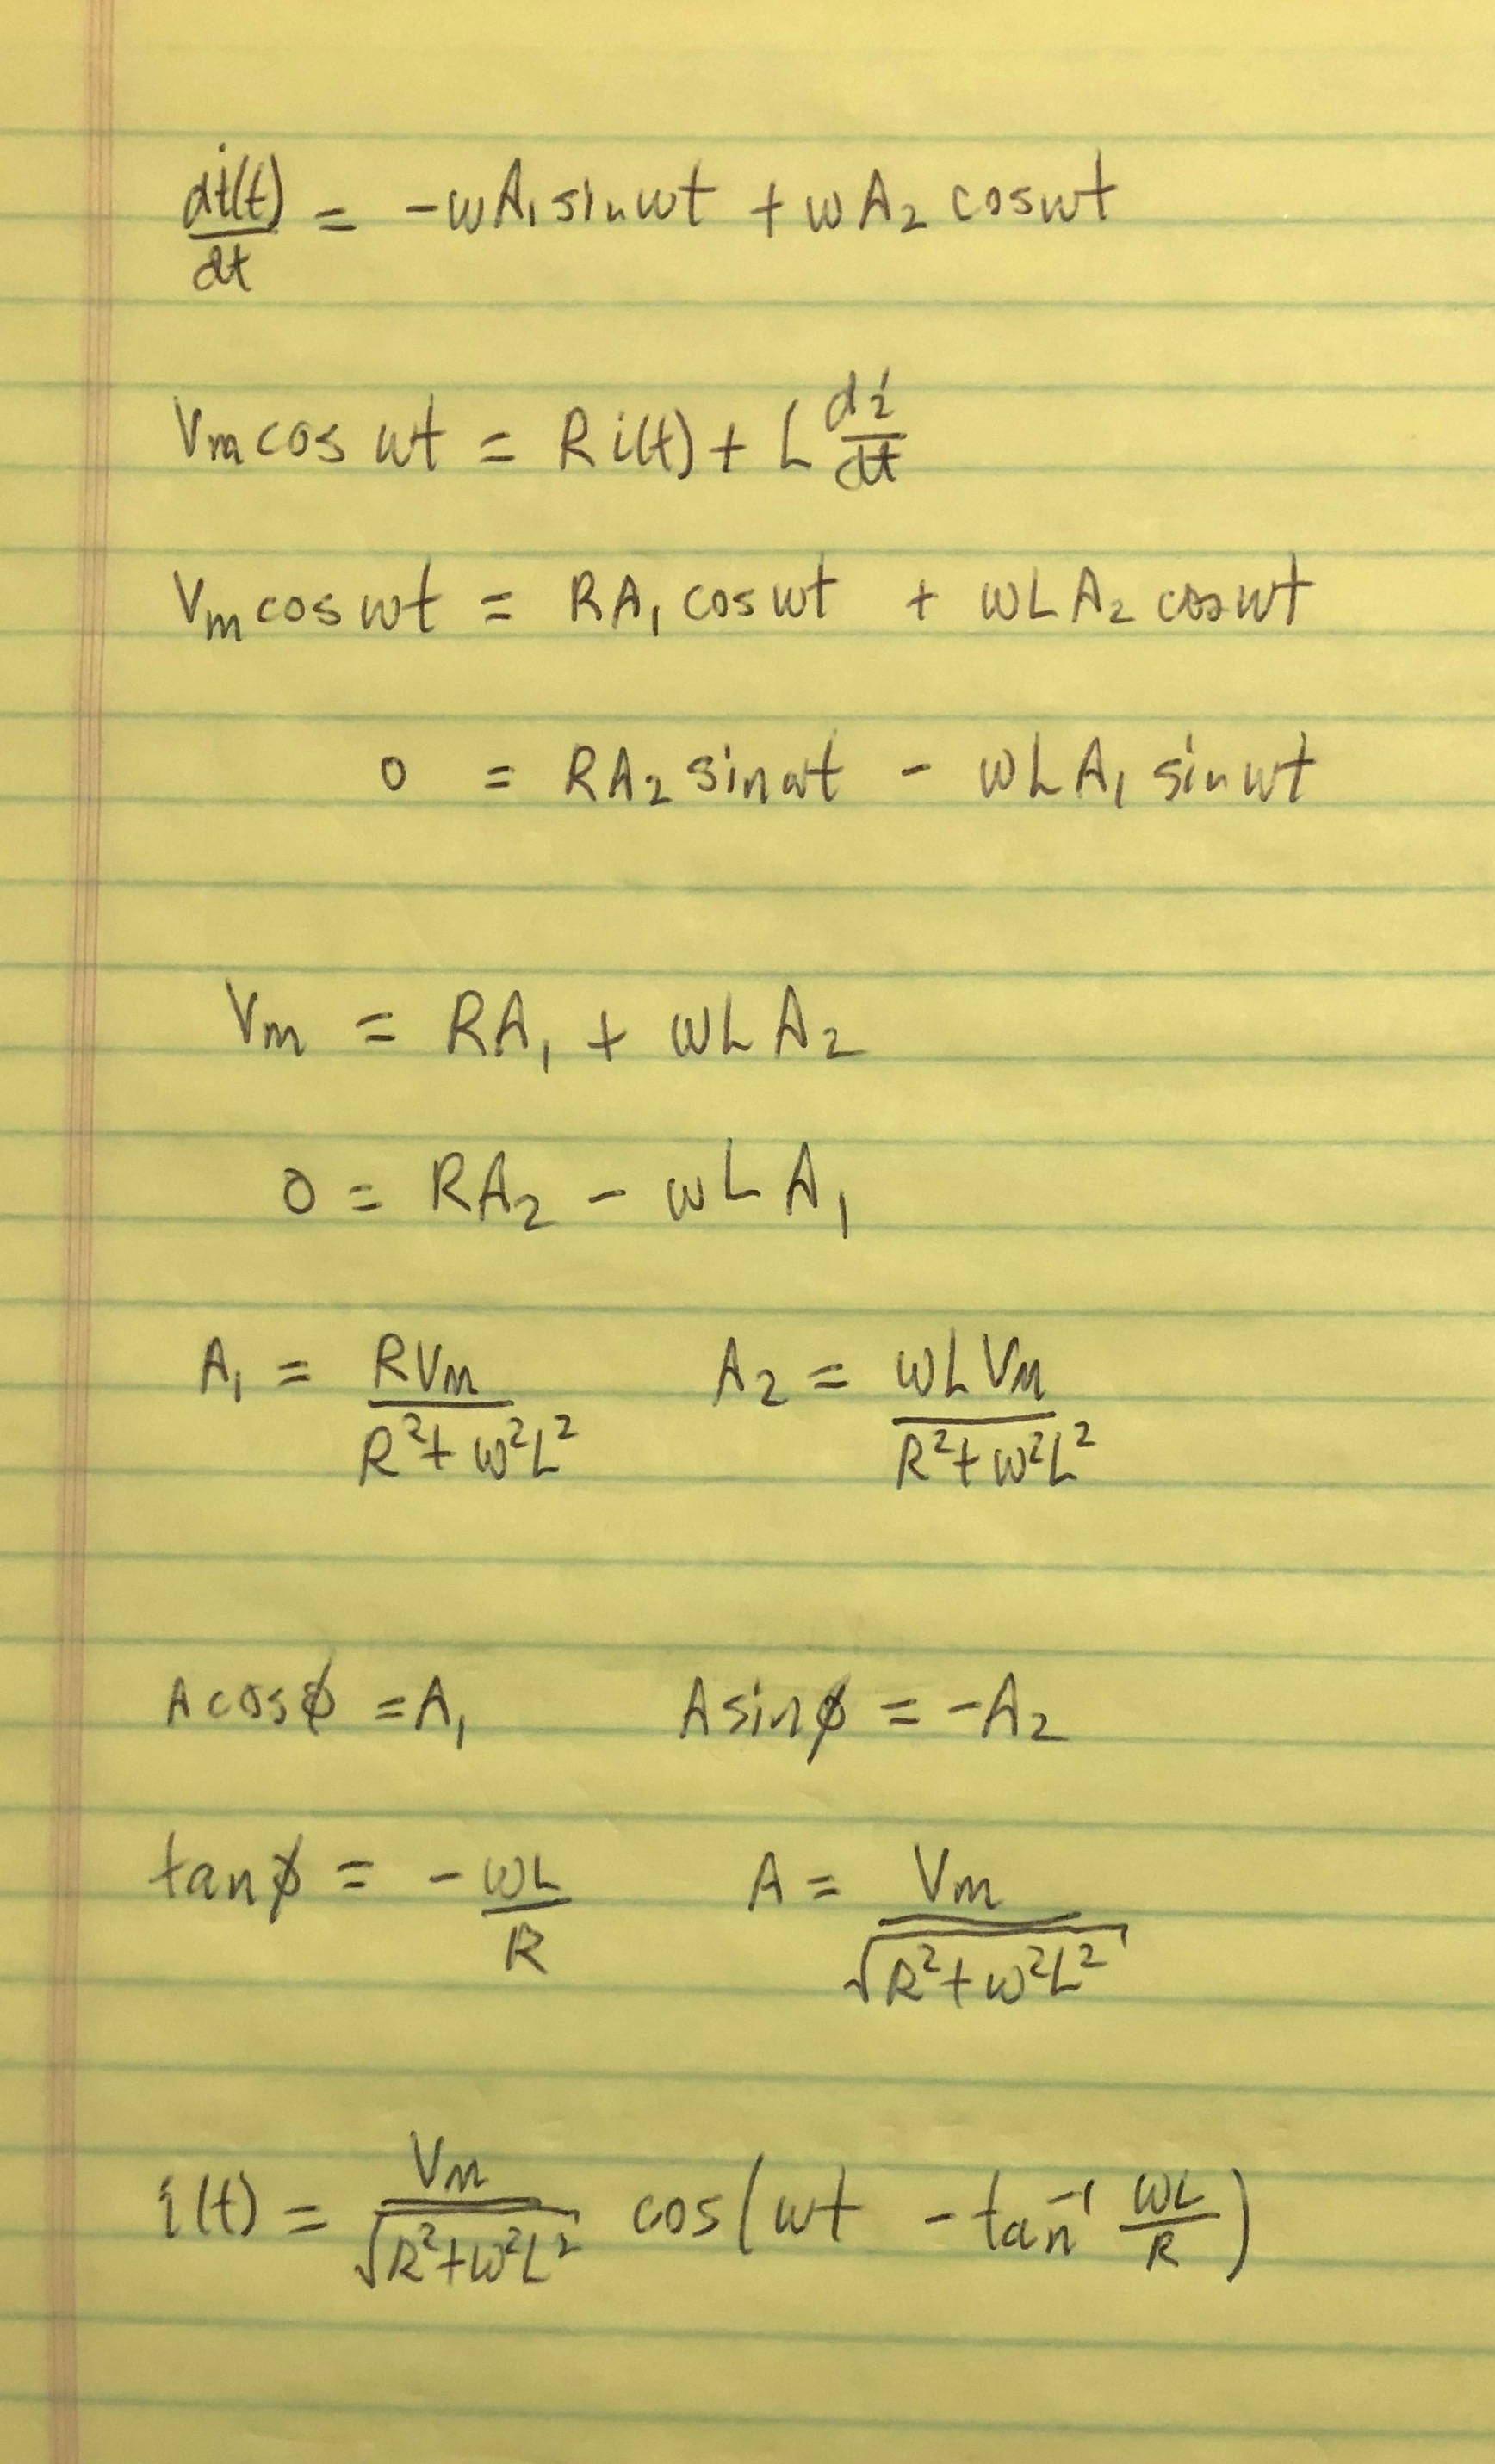 di(t)/dt = -ωA₁ sin ωt + ωA₂ cos ωt
Vm cos ωt = R i(t) + L di/dt
Vm cos ωt = RA₁ cos ωt + ωLA₂ cos ωt
0 = RA₂ sin ωt - ωLA₁ sin ωt
Vm = RA₁ + ωLA₂
0 = RA₂ - ωLA₁
A₁ = RVm/(R²+ω²L²) A₂ = ωLVm/(R²+ω²L²)
A cos ϕ = A₁ A sin ϕ = -A₂
tan ϕ = -ωL/R A = Vm/√(R²+ω²L²)
i(t) = Vm/√(R²+ω²L²) cos(ωt - tan⁻¹ ωL/R)